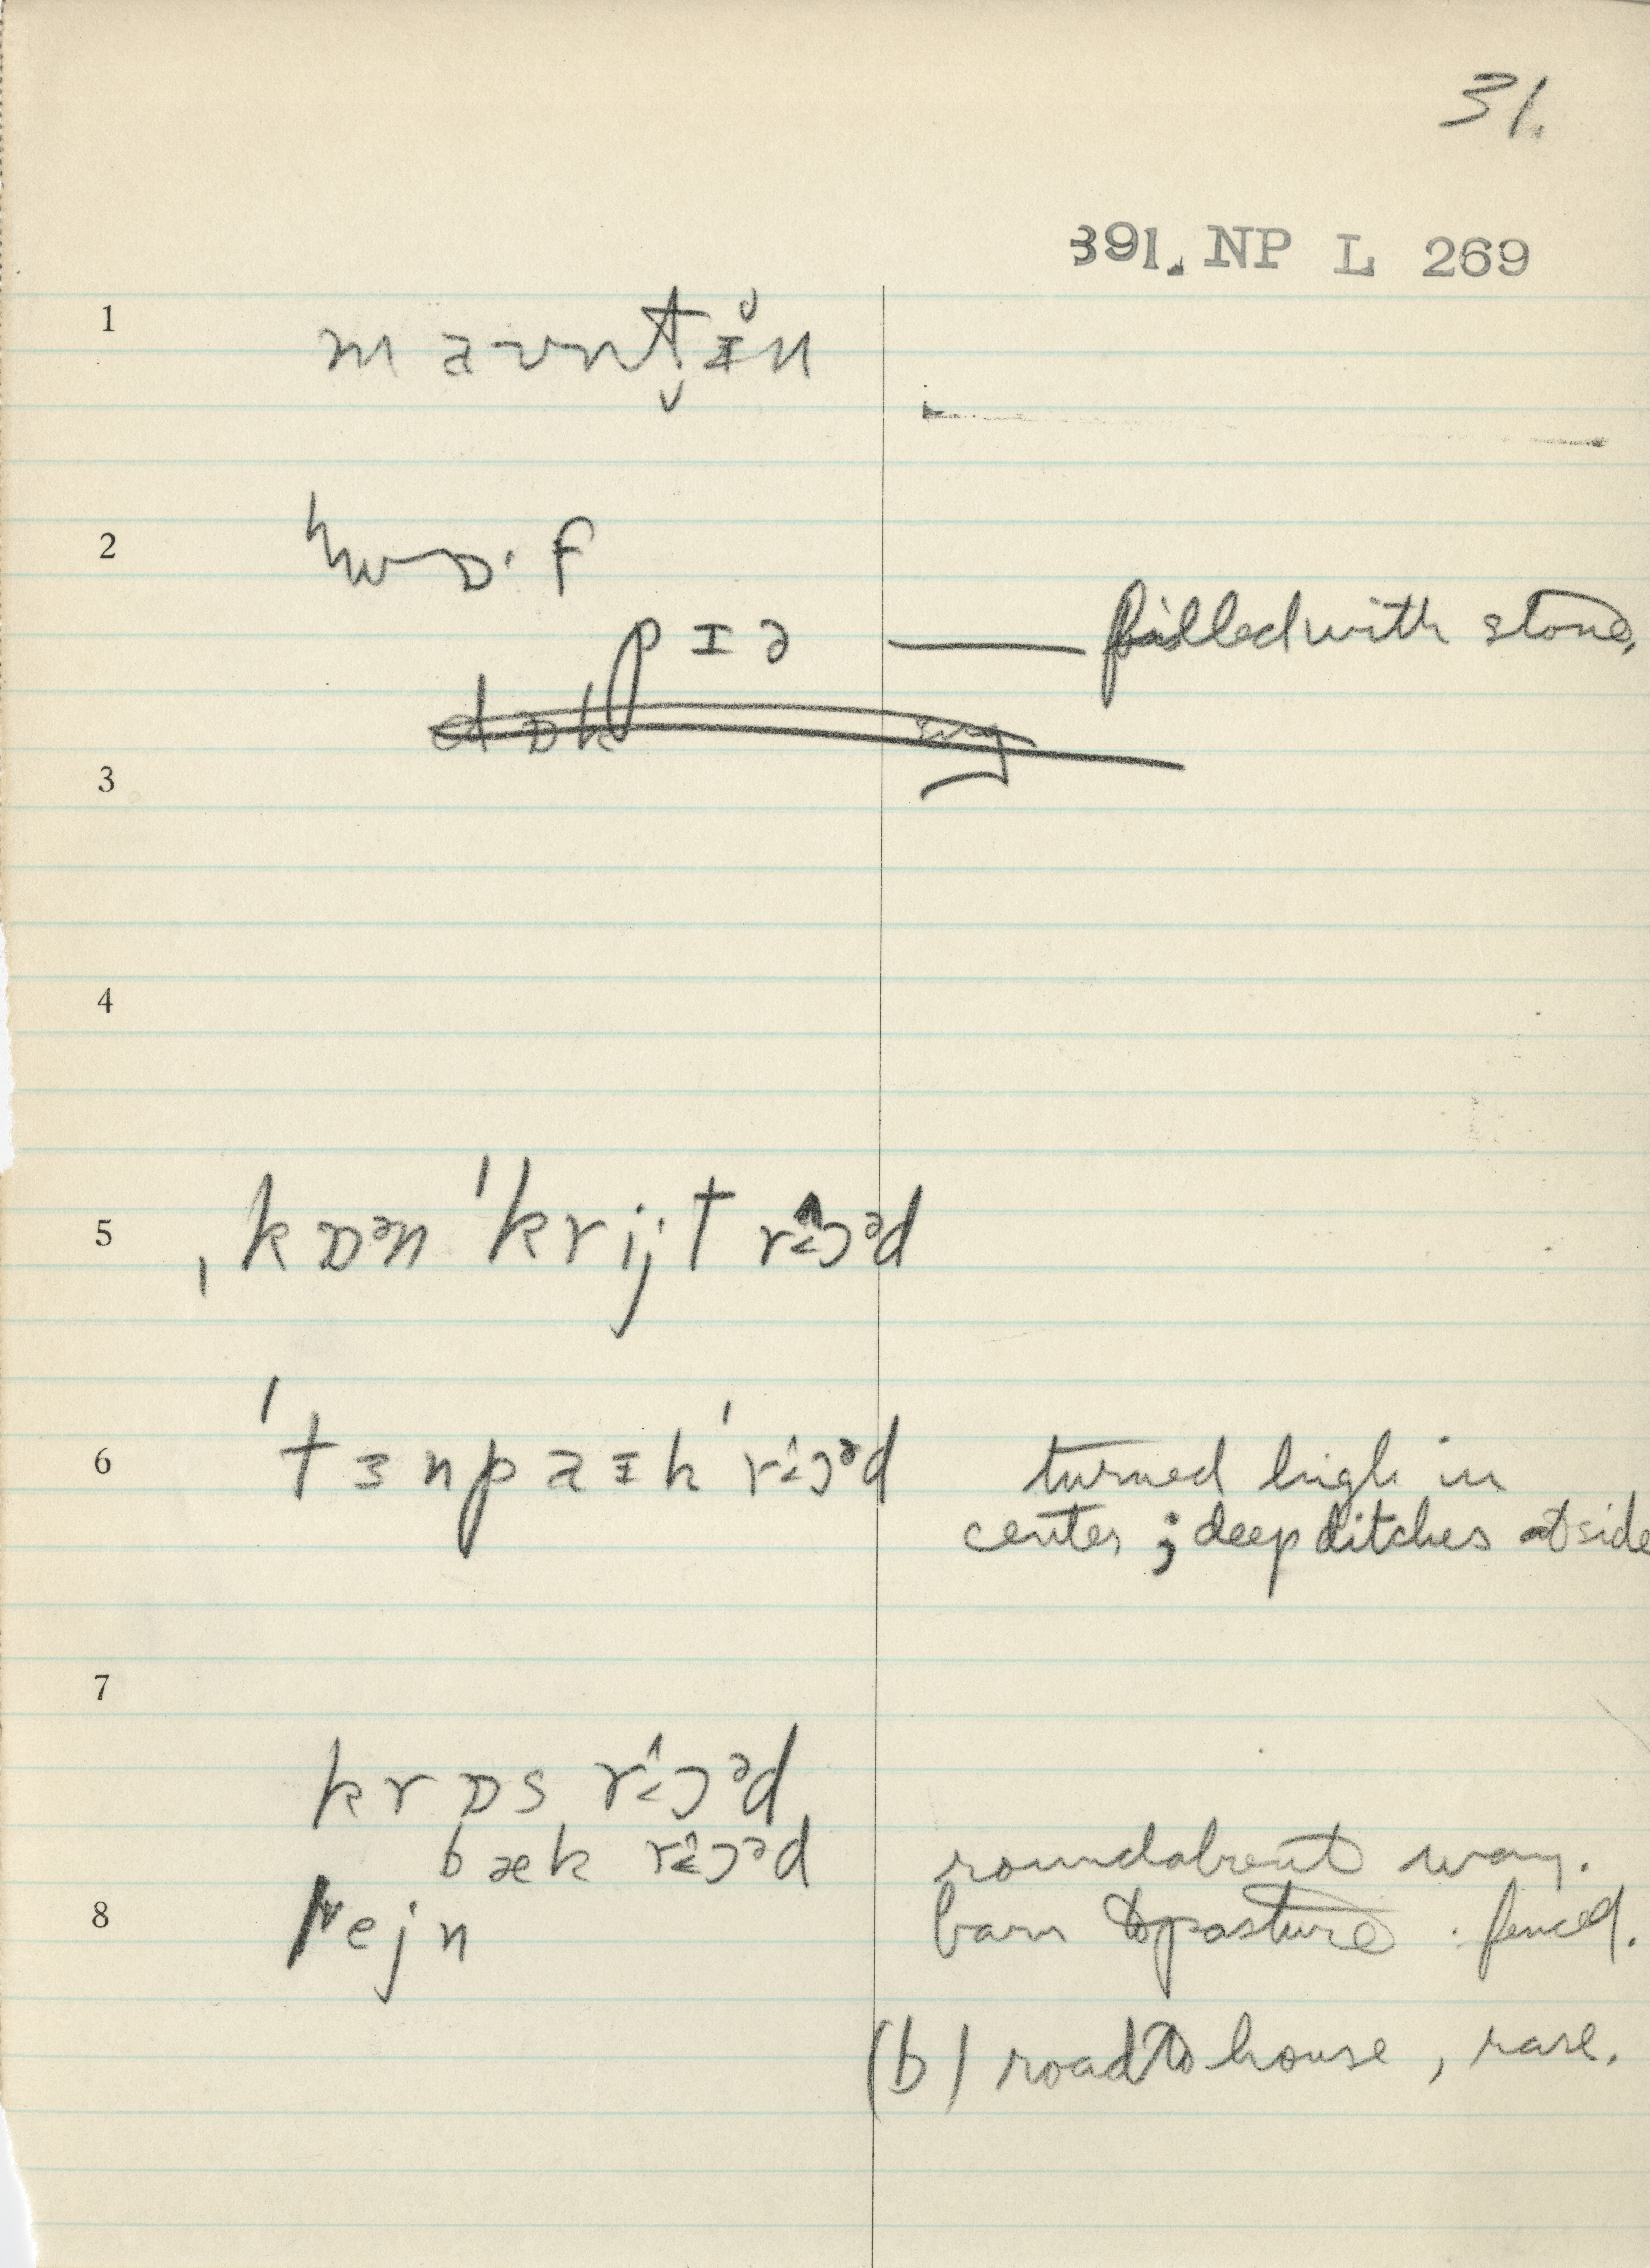 31.
391. NP L 269
1 maʊnt̬ɪ̆n
2 hwɒ·f
pɪə — filled with stone,
dɒk ing
3
4
5 ˌkɒᵊn ˈkrijt rɔ^<ᵊd
6 ˈtɜnpaɪkˈrɔ^<ᵊd turned high in
center ; deep ditches at side
7
krɒs rɔ^<ᵊd
bæk rɔ^<ᵊd roundabout way.
8 lejn barn to pasture : fenced.
(b) road to house , rare.